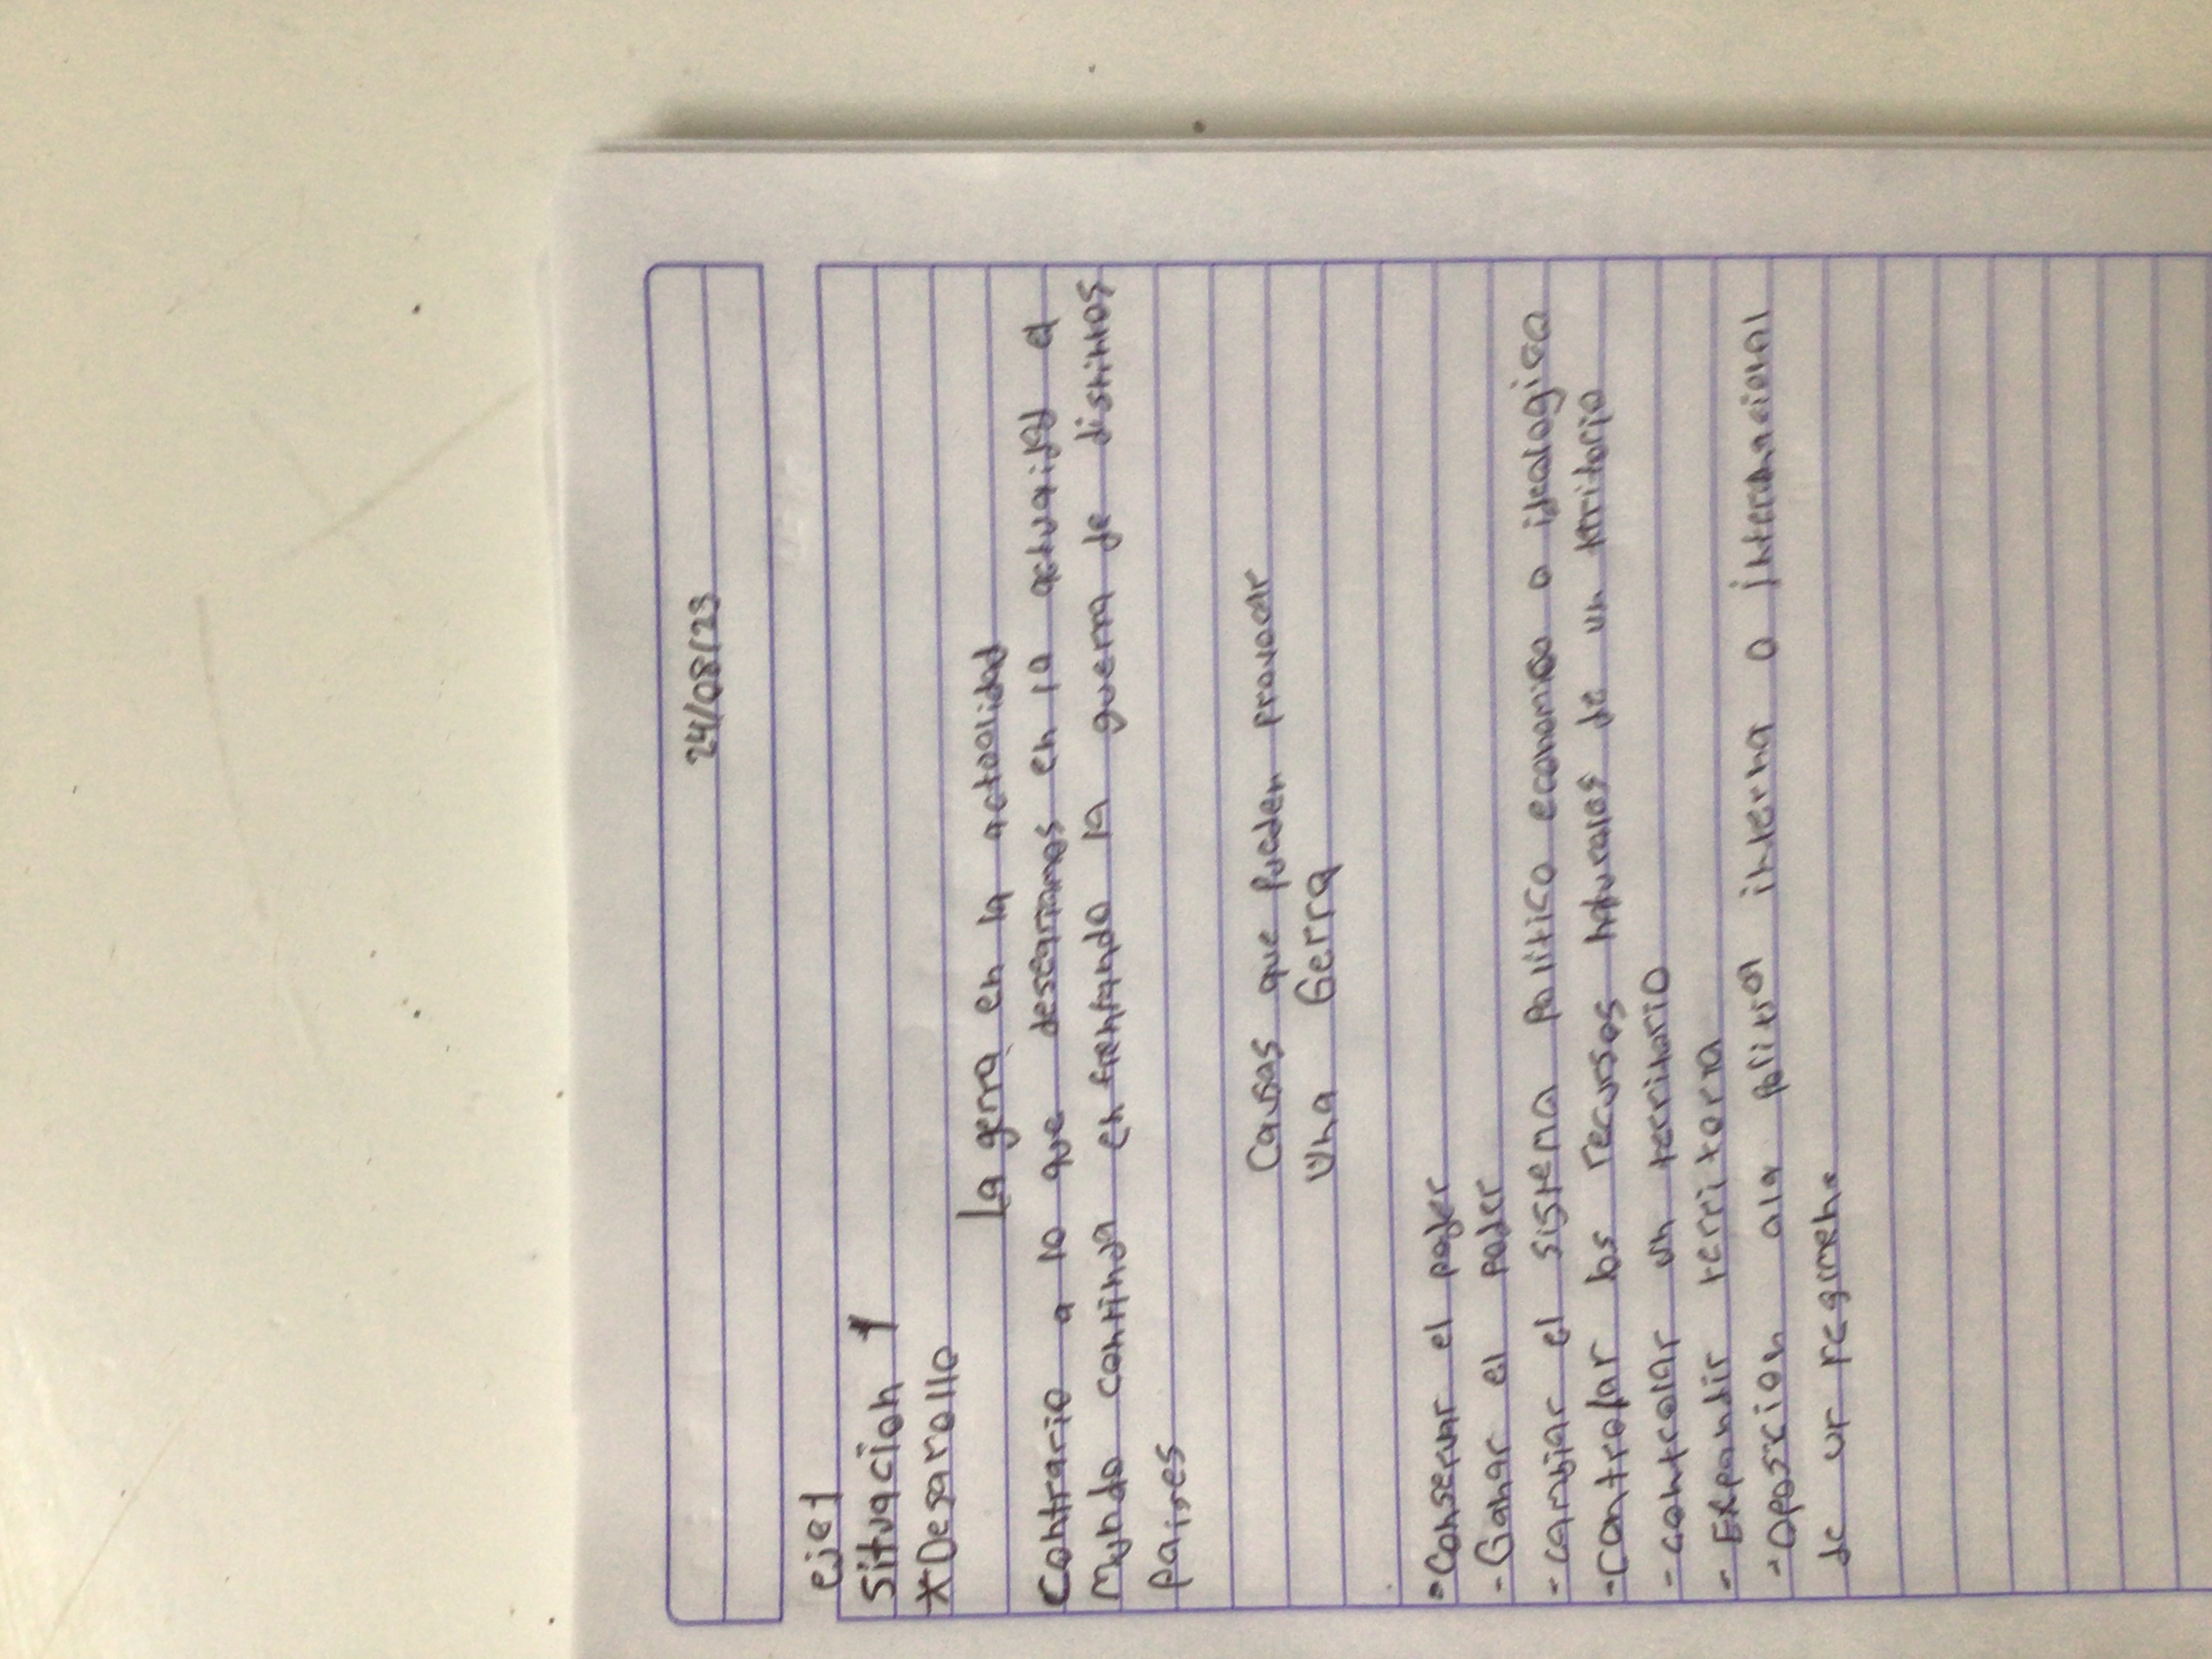 24/08/23
eje1
Situacion 1
*Desarollo
La gerra en la actoalidad
Contrario a lo que desearíamos en la actuaidad el
Mundo continua en frentando la guerra de distintos
paises
Causas que pueden provocar
Una Gerra
- Conservar el poder
- Ganar el poder
- cambiar el sistema politico economico o idealogico
- controlar los recursos naturales de un territorio
- controlar un territorio
- Expandir territorra
- Oposicion ala politica interna o internacional
de ur regimene